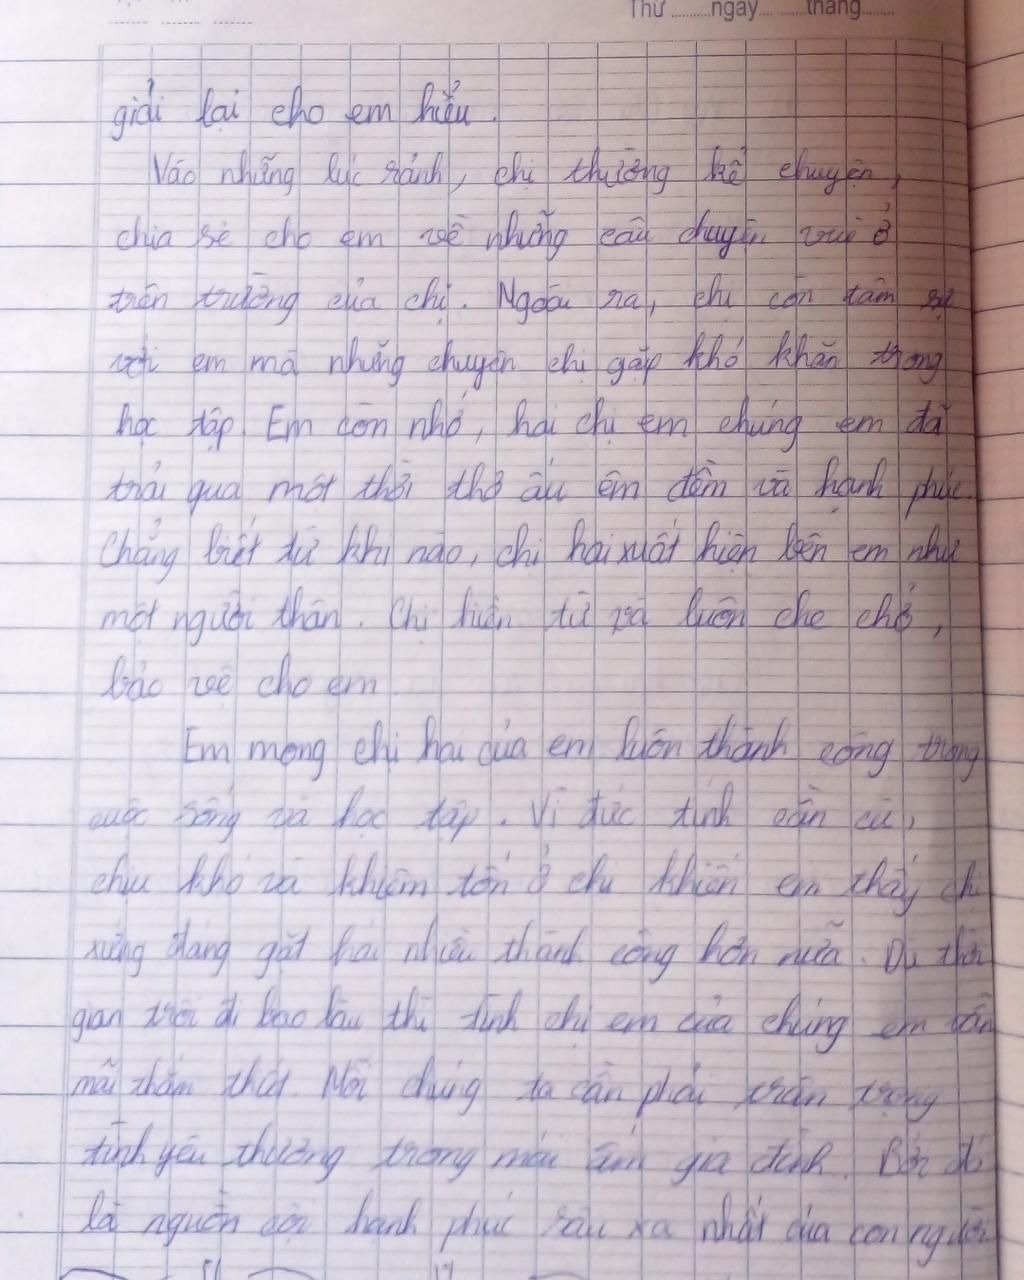 Thứ ........ngày.... ......tháng........
giải lại cho em hiểu.
Vào những lúc rảnh, chị thường kể chuyện,
chia sẻ cho em về những câu chuyện vui ở
trên trường của chị. Ngoài ra, chị còn tâm sự
với em mà những chuyện chị gặp khó khăn trong
học tập. Em còn nhớ, hai chị em chúng em đã
trải qua một thời thơ ấu êm đềm và hạnh phúc.
Chẳng biết từ khi nào, chị hai xuất hiện bên em như
một người thân. Chị hiền từ và luôn che chở,
bảo vệ cho em.
Em mong chị hai của em luôn thành công trong
cuộc sống và học tập. Vì đức tính cần cù,
chịu khó và khiêm tốn ở chị khiến em thấy chị
xứng đáng gặt hái nhiều thành công hơn nữa. Dù thời
gian trôi đi bao lâu thì tình chị em của chúng em vẫn
mãi thắm thiết. Mỗi chúng ta cần phải trân trọng
tình yêu thương trong mái ấm gia đình. Bởi đó
là nguồn cội hạnh phúc sâu xa nhất của con người